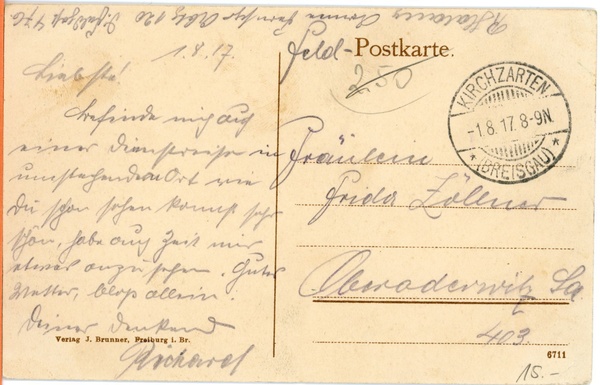 1.8.17.
Liebste!
Befinde mich auf
einer Dienstreise in
umstehendem Ort wie
Du schon sehen kannst sehr
schön, habe auch Zeit mir
etwas anzusehen. Gutes
Wetter, bloß allein.
Deiner denkend
Richard
Verlag J. Brunner, Freiburg i. Br.
Feld-Postkarte.
250
KIRCHZARTEN
-1.8.17.8-9N.
* (BREISGAU) *
Fräulein
Frida Zöllner
Oberoderwitz Sa
403
6711
15.-